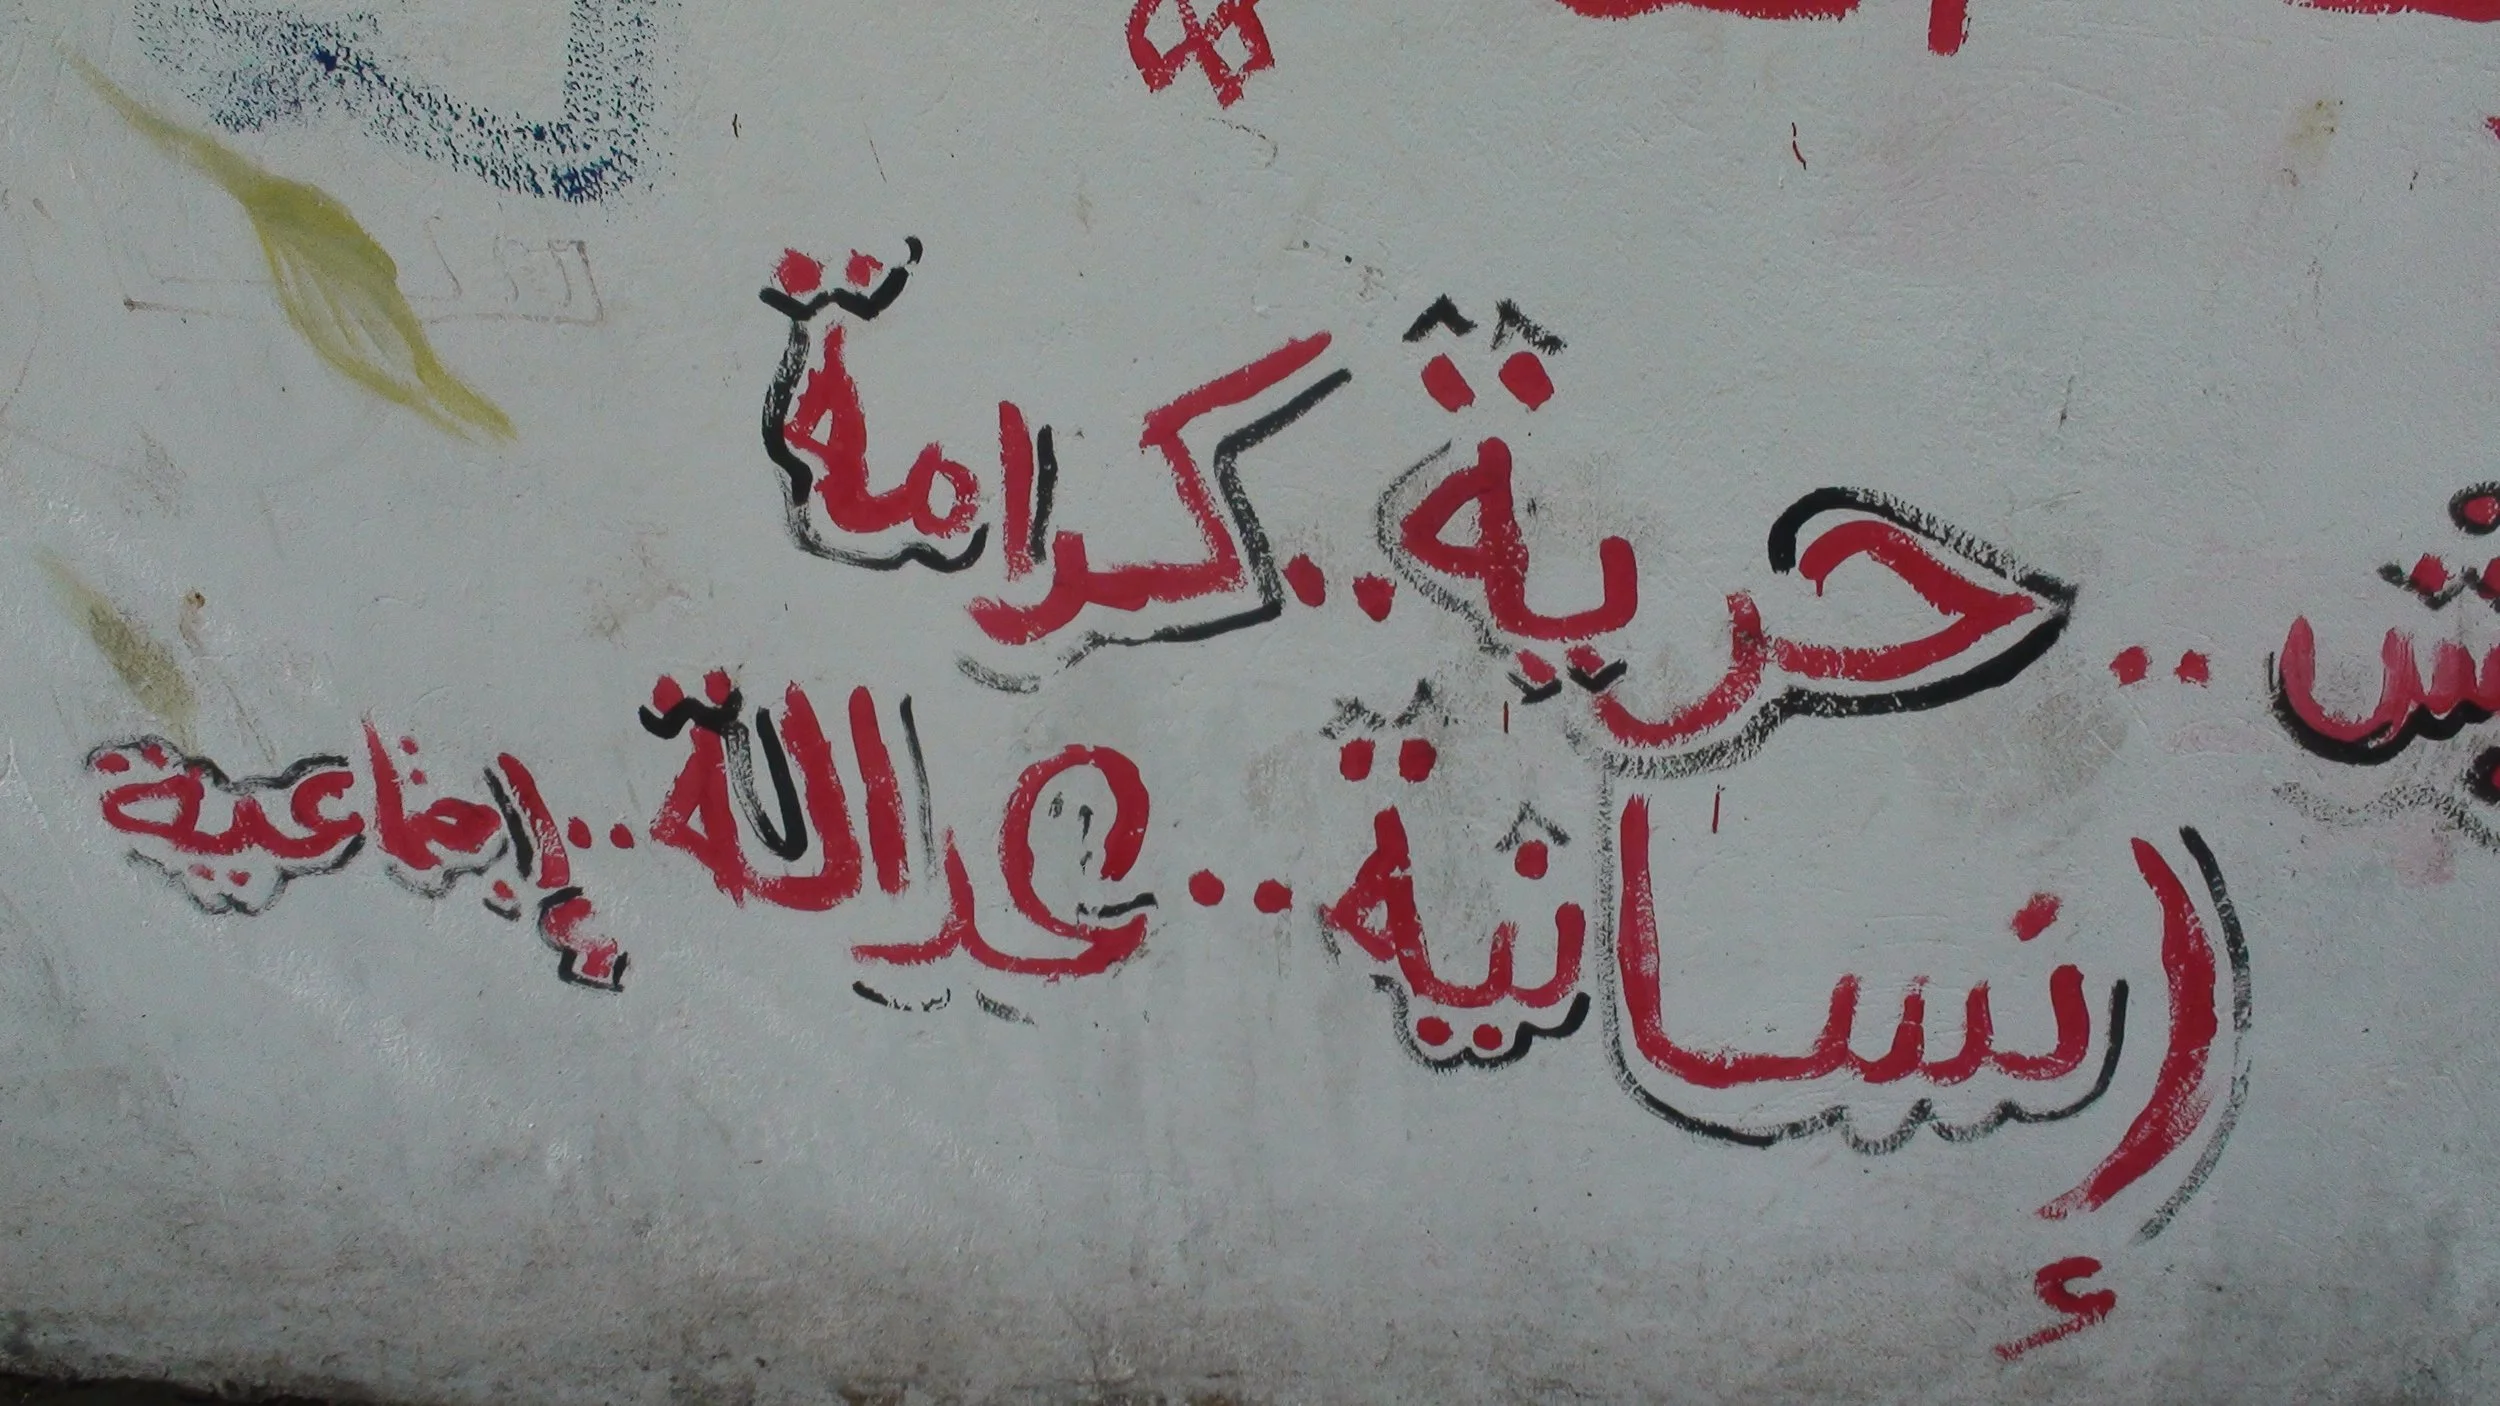 .. حرية .. كرامة
إنسانية .. عدالة .. إجتماعية